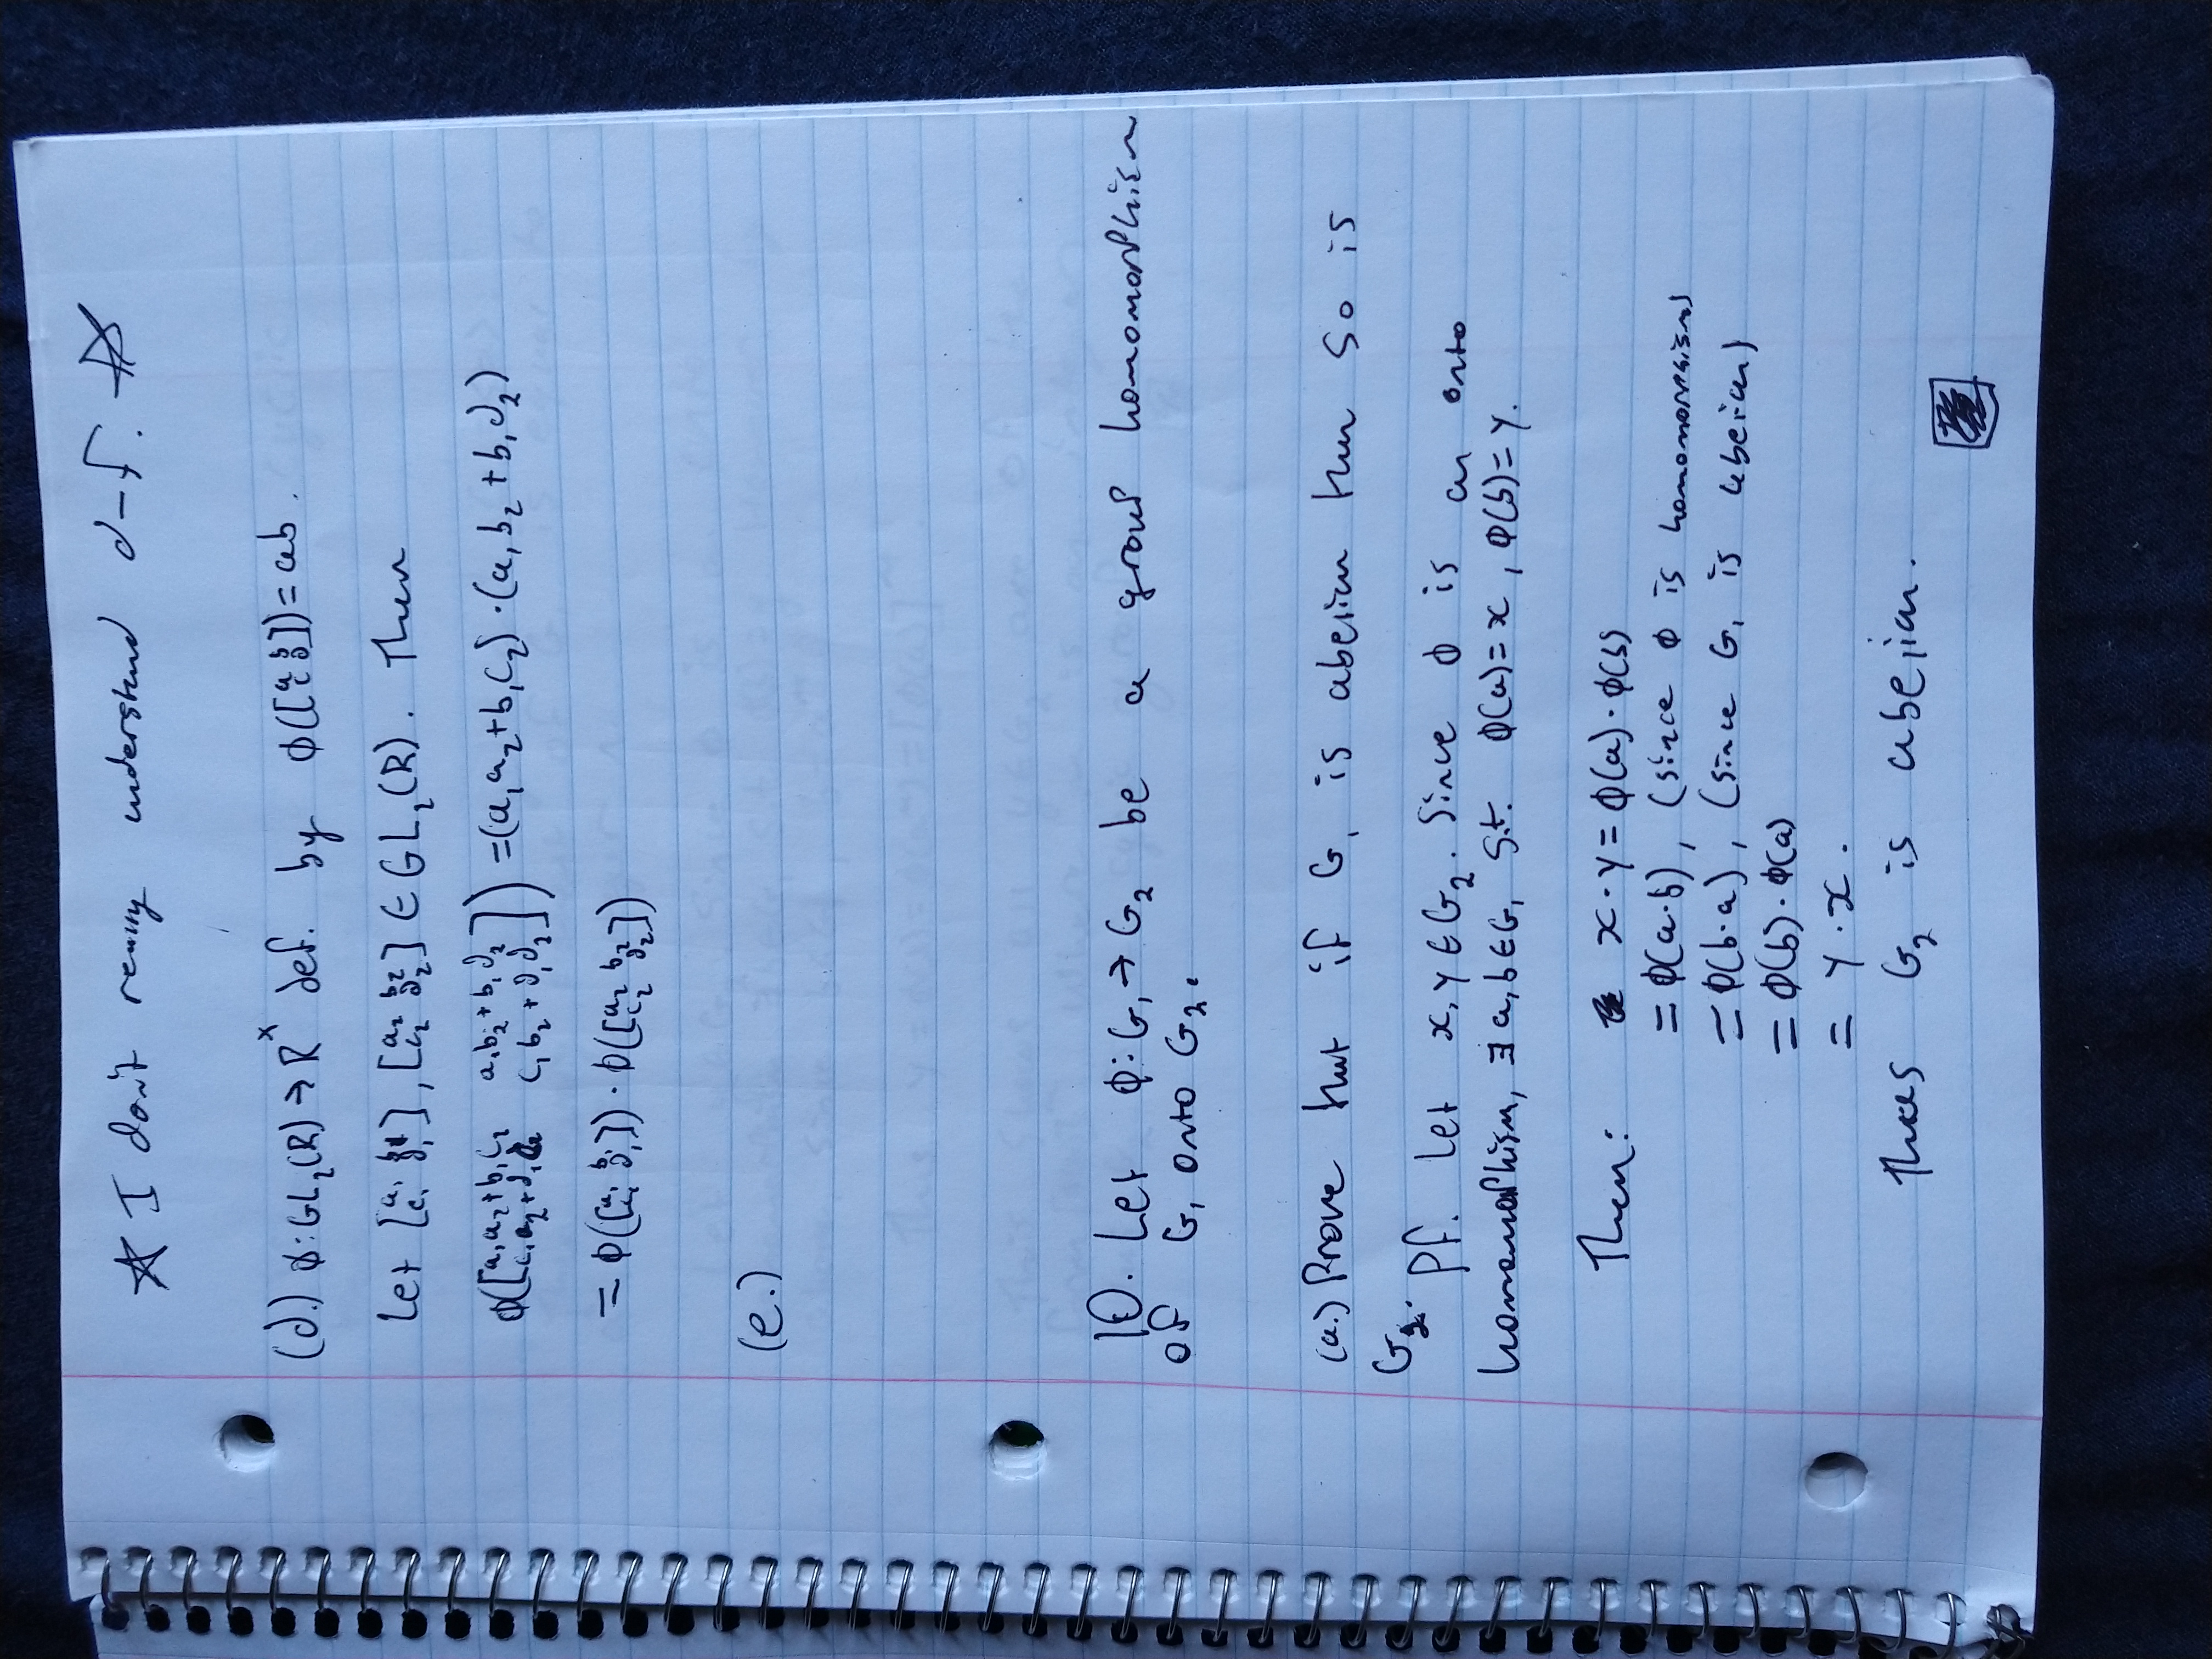 ☆ I don't really understand d-f. ☆
(d.) ϕ:GL₂(R)→R^x def. by ϕ([a b; c d])=ab.
Let [a₁ b₁; c₁ d₁], [a₂ b₂; c₂ d₂] ∈ GL₂(R). Then
ϕ([a₁a₂+b₁c₂ a₁b₂+b₁d₂; c₁a₂+d₁c₂ c₁b₂+d₁d₂]) =(a₁a₂+b₁c₂)·(a₁b₂+b₁d₂)
= ϕ([a₁ b₁; c₁ d₁])·ϕ([a₂ b₂; c₂ d₂])
(e.)
10. Let ϕ:G₁→G₂ be a group homomorphism
of G₁ onto G₂.
(a.) Prove that if G₁ is abelian then so is
G₂. pf. Let x,y∈G₂. Since ϕ is an onto
homomorphism, ∃ a,b∈G₁ s.t. ϕ(a)=x, ϕ(b)=y.
Then: x·y=ϕ(a)·ϕ(b)
=ϕ(a·b), (since ϕ is homomorphism)
=ϕ(b·a), (since G₁ is abelian)
=ϕ(b)·ϕ(a)
= y·x.
Thus G₂ is abelian.